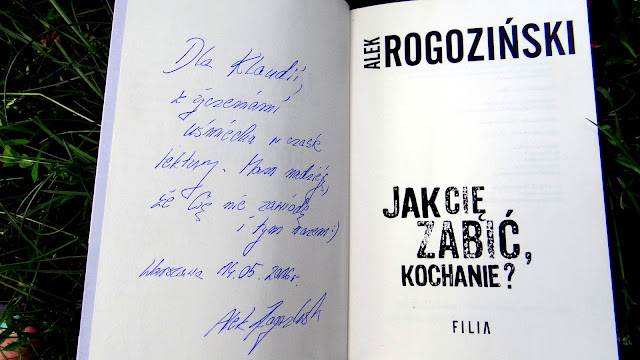 Dla Klaudii,
z życzeniami
uśmiechu w czasie
lektury. Mam nadzieję,
że Cię nie zawiodę
i tym razem :)
Warszawa 14.05.2016 r.
Alek Rogoziński
ALEK ROGOZIŃSKI
JAK CIĘ
ZABIĆ,
KOCHANIE?
FILIA